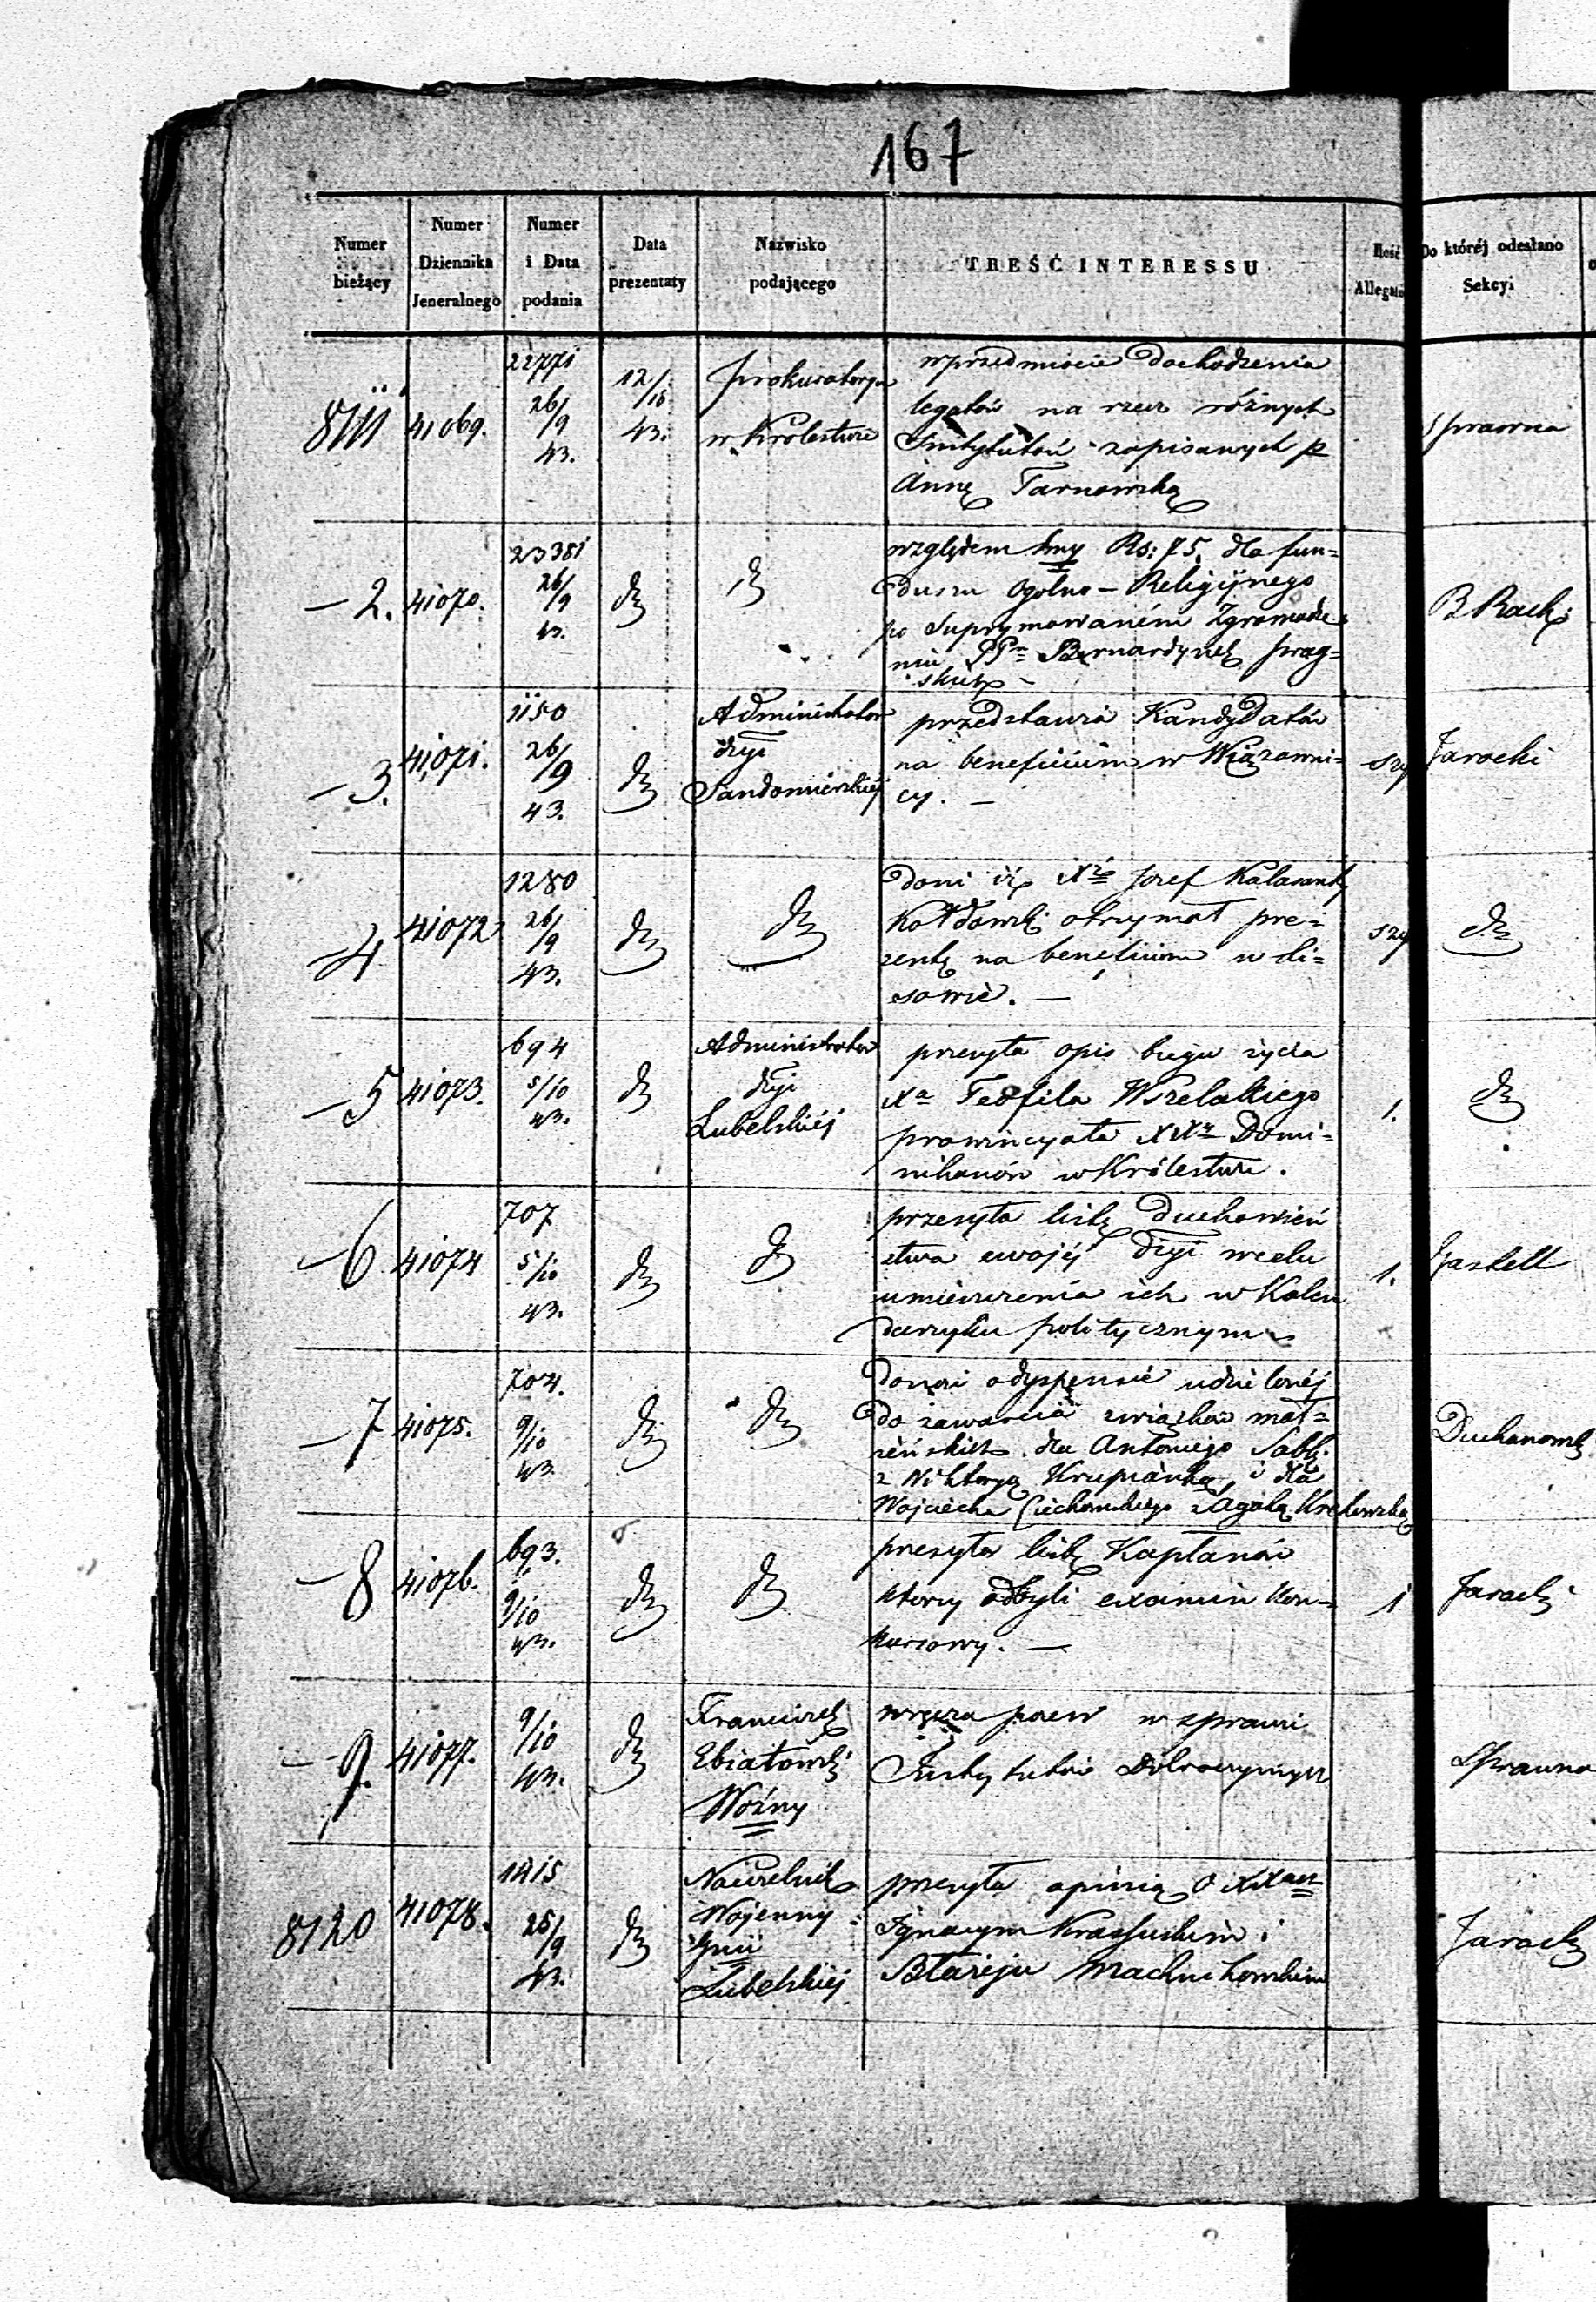 167
Numer bieżący
Numer Dziennika Jeneralnego
Numer i Data podania
Data prezentaty
Nazwisko podającego
TREŚĆ INTERESSU
Ilość Allegat
Do któréj odesłano Sekcyi
8111
41069.
22771
26/9
43.
12/10
43.
Prokuratorya
w Krolestwie
w przedmiocie dochodzenia
legatów na rzecz różnych
Instytutów zapisanych p
Annę Tarnowską
Sprawna
2.
41070.
23381
26/9
43.
względem Rs: 75. dla fun=
duszu Ogolno-Religijnego
po Suprymowaném Zgromadze
niu PPn Bernardynek prag=
skich
B Rach
3.
41,071.
1150
26/9
43.
Administrator
dyi
Sandomierskiéj
przedstawia Kandydatów
na beneficium w Wiązowni=
cy. —
Jarocki
4
41072
1280
26/9
43.
doni iż Xże Jozef Kalasanty
otrzymał pre=
zentę na beneficium w Li=
sowie. —
5
41073.
694
5/10
43.
Administrator
dyi
Lubelskiéj
przesyła opis biegu życia
Xa Teofila Wszelakiego
prowincyała XXw Domi=
nikanów w Królestwie.
1.
6
41074
707
5/10
43.
przesyła listę Duchowień
stwa swojéj dyi w celu
umieszczenia ich w Kalen
darzyku politycznym
1.
7
41075.
704.
9/10
43.
donosi o dyspensie udzieloné́j
do zawarcia związków mał=
żeńskich dla Antoniego
z Wiktoryą i dla
Wojciecha Ciechomskiego z Agatą
8
41076.
693.
9/10
43.
przesyła listę Kapłanów
którzy odbyli examin kon=
kursowy. —
1
Jarocki
9.
41077.
9/10
43.
Franciszek
Woźny
wręcza pozew w sprawie
Instytutów Dobroczynnych
Sprawna
8120
41078.
1415
25/9
43.
Naczelnik
Wojenny
Gnii
Lubelskiéj
przesyła opinią o XXach
Ignacym i
Błażeju
Jarocki